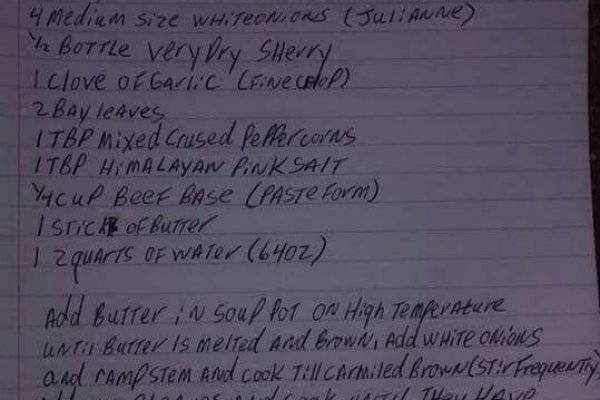 4 Medium Size White onions (Julianne)
1/2 Bottle Very Dry Sherry
1 Clove of Garlic (Fine Chop)
2 Bay leaves
1 TBP Mixed Crused Peppercorns
1 TBP Himalayan Pink Salt
1/4 cup Beef Base (Paste Form)
1 Stick of Butter
1 2 quarts of Water (64oz)
Add Butter in Soup Pot on High Temperature
until Butter is melted and Brown, Add White onions
and ramp stem and cook till carmiled Brown (stir frequently)
and cook until they have